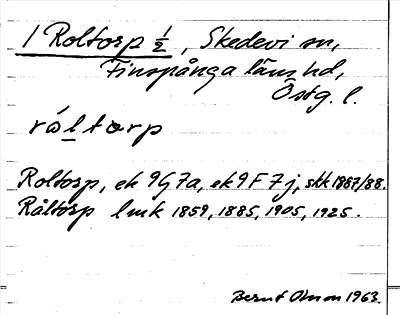 1 Roltorp ½, Skedevi sn,
Finspånga läns hd,
Östg. l.
råltorp
Roltorp, ek 9G7a, ek 9F7j, skk 1887/88.
Råltorp lmk 1859, 1885, 1905, 1925.
Bernt Olsson 1963.